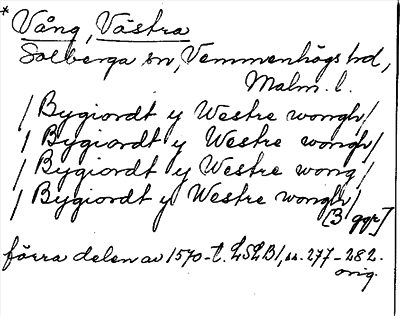 * Vång, Västra
Solberga sn, Vemmenhögs hd,
Malm. l.
/ Bygiordt y Westre wongh /
/ Bygiordt y Westre wongh /
/ Bygiordt y Westre wong /
/ Bygiordt y Westre wongh /
[3 ggr]
förra delen av 1570-t. LSLB1, ss. 277-282.
orig.